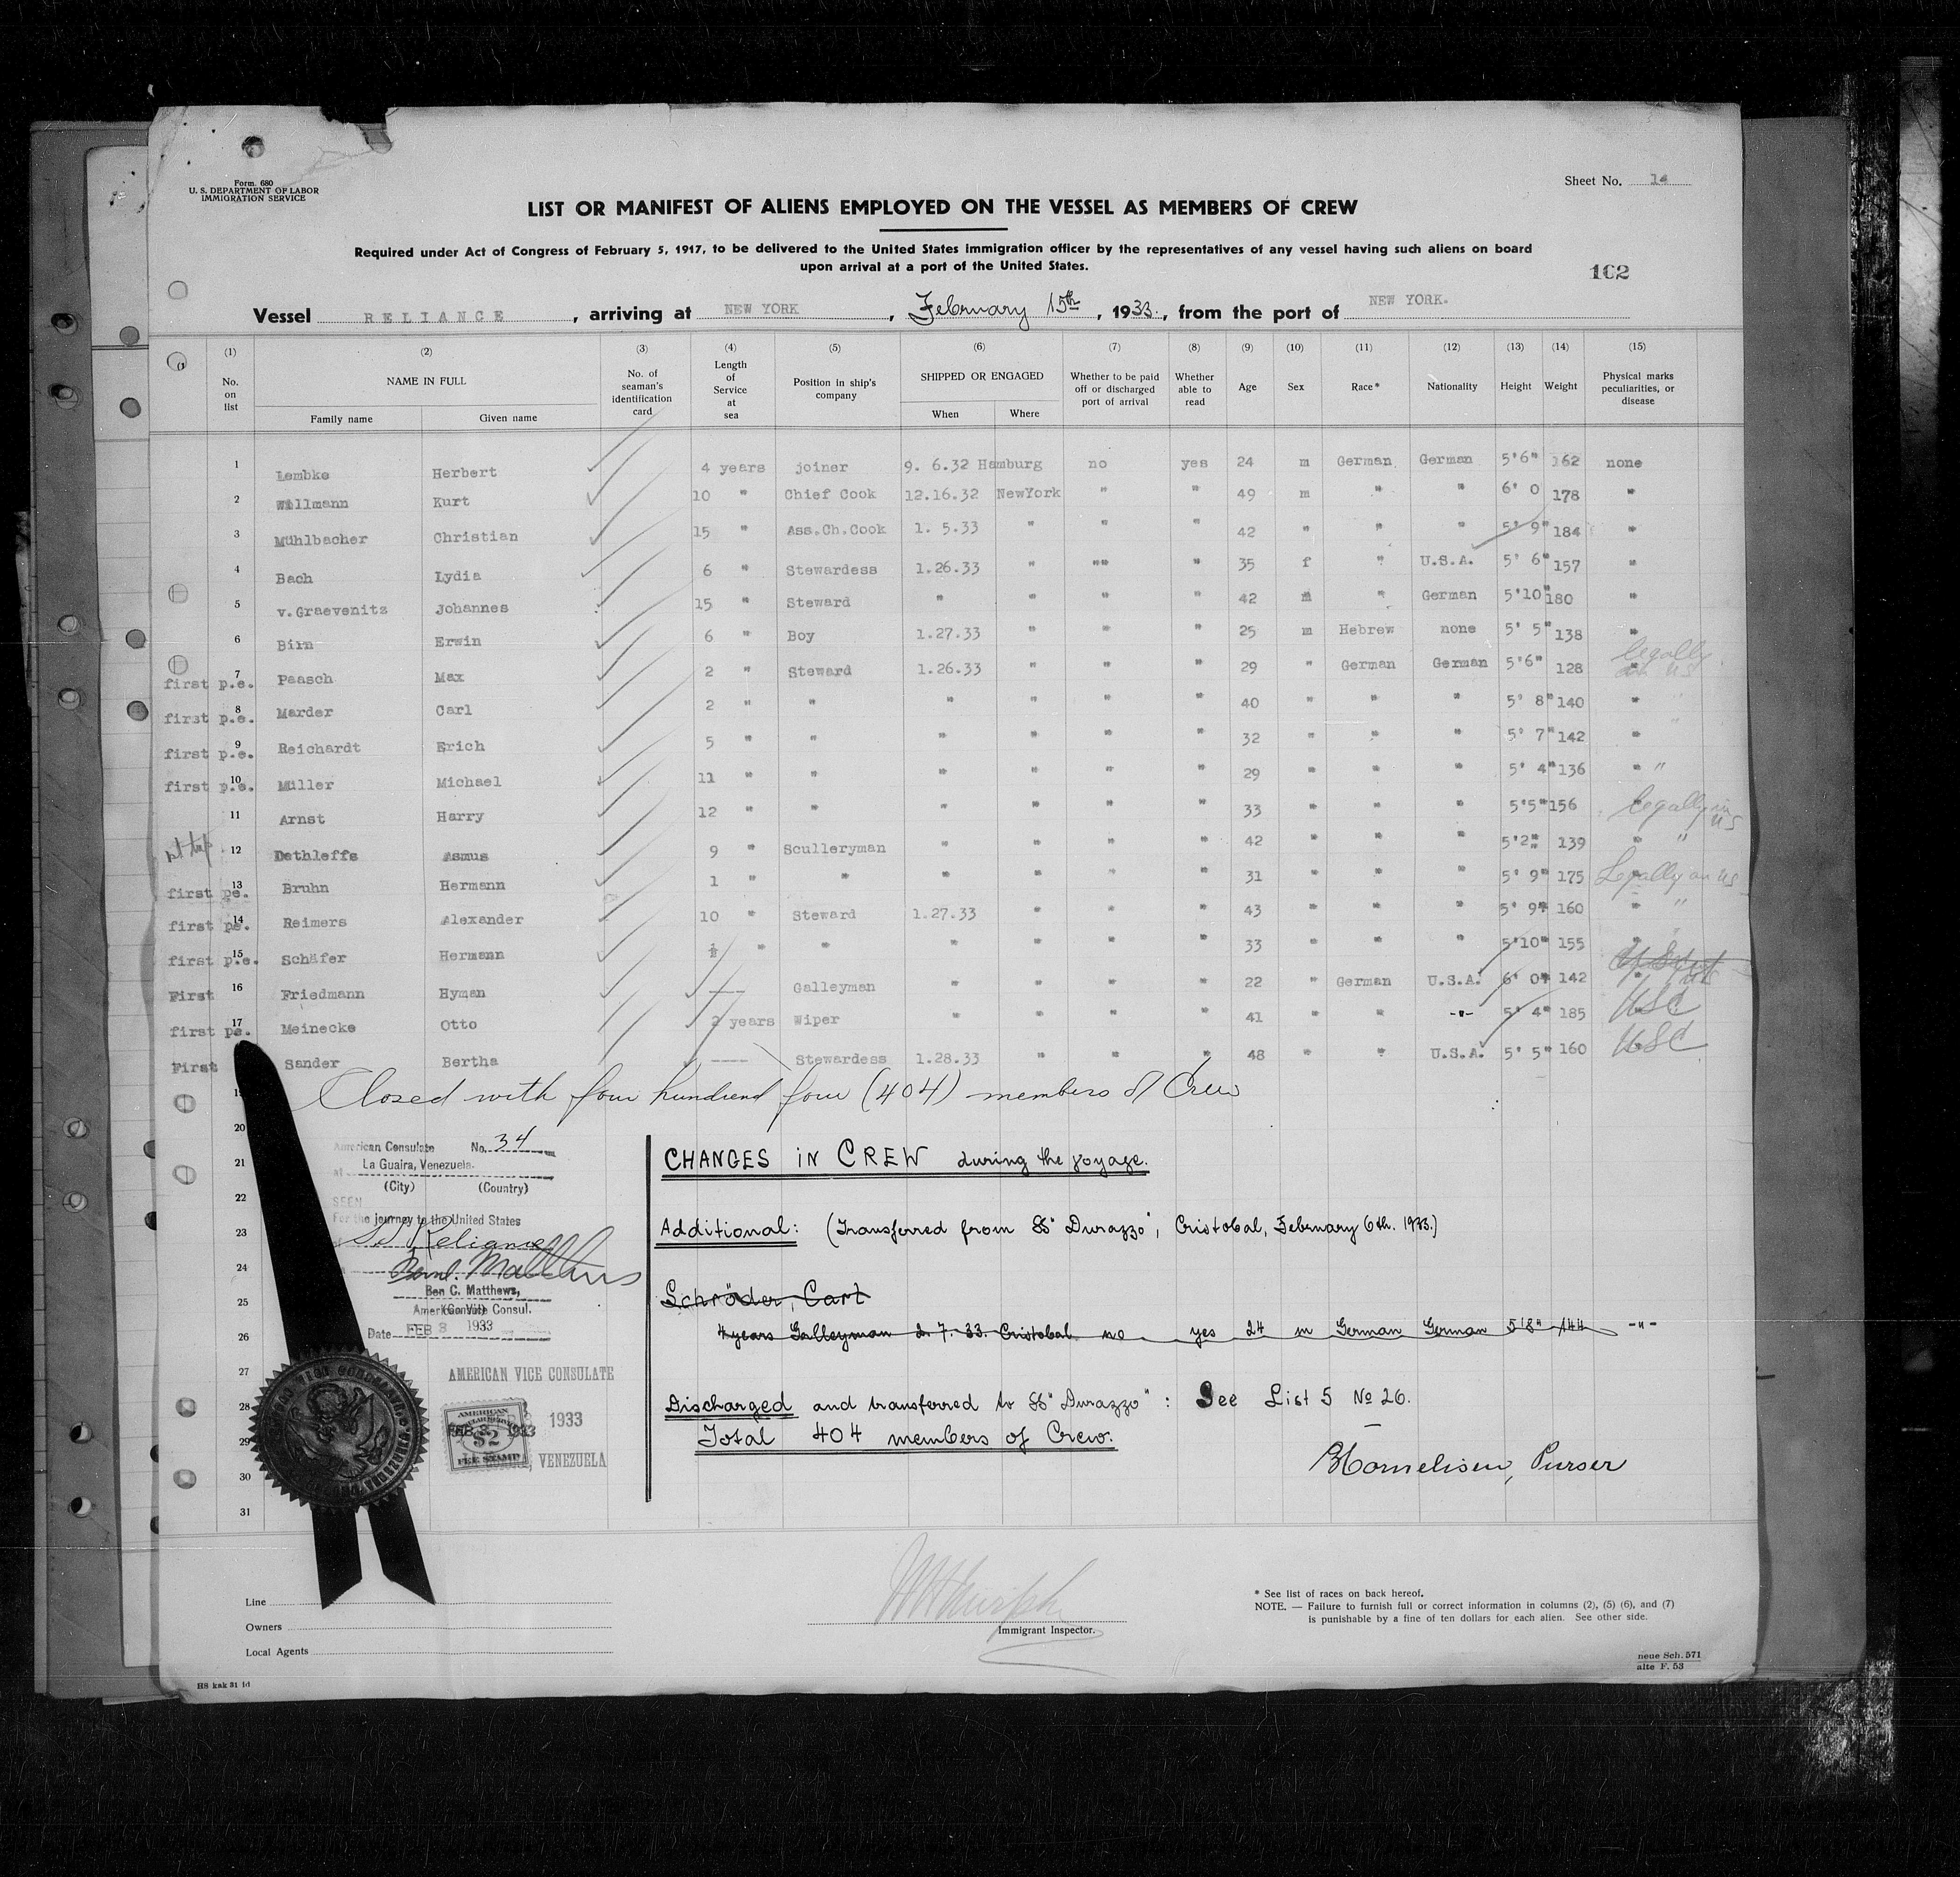 Form. 680
U. S. DEPARTMENT OF LABOR
IMMIGRATION SERVICE
Sheet No. 14
LIST OR MANIFEST OF ALIENS EMPLOYED ON THE VESSEL AS MEMBERS OF CREW
Required under Act of Congress of February 5, 1917, to be delivered to the United States Immigration officer by the representatives of any vessel having such aliens on board
upon arrival at a port of the United States.
102
Vessel RELIANCE, arriving at NEW YORK, February 15th, 1933., from the port of NEW YORK.
(1) (2) (3) (4) (5) (6) (7) (8) (9) (10) (11) (12) (13) (14) (15)
No. on list NAME IN FULL Family name Given name No. of seaman's identification card Length of Service at sea Position in ship's company SHIPPED OR ENGAGED When Where Whether to be paid off or discharged port of arrival Whether able to read Age Sex Race* Nationality Height Weight Physical marks peculiarities, or disease
1 Lembke Herbert 4 years joiner 9. 6.32 Hamburg no yes 24 m German German 5'6" 162 none
2 Willmann Kurt 10 " Chief Cook 12.16.32 NewYork " " 49 m " " 6' 0 178 "
3 Mühlbacher Christian 15 " Ass.Ch.Cook 1. 5.33 " " " 42 " " " 5' 9" 184 "
4 Bach Lydia 6 " Stewardess 1.26.33 " "" " 35 f " U.S.A. 5' 6" 157 "
5 v.Graevenitz Johannes 15 " Steward " " " " 42 m " German 5'10" 180 "
6 Birn Erwin 6 " Boy 1.27.33 " " " 25 m Hebrew none 5' 5" 138 "
first p.e. 7 Paasch Max 2 " Steward 1.26.33 " " " 29 " German German 5'6" 128 " legally US
first p.e. 8 Marder Carl 2 " " " " " " 40 " " " 5' 8" 140 " "
first p.e. 9 Reichardt Erich 5 " " " " " " 32 " " " 5' 7" 142 " "
first p.e. 10 Müller Michael 11 " " " " " " 29 " " " 5' 4" 136 " "
11 Arnst Harry 12 " " " " " " 33 " " " 5'5" 156 " legally in US
12 Dethleffs Asmus 9 " Sculleryman " " " " 42 " " " 5'2" 139 " "
first pe. 13 Bruhn Hermann 1 " " " " " " 31 " " " 5' 9" 175 " Legally in US
first pe. 14 Reimers Alexander 10 " Steward 1.27.33 " " " 43 " " " 5' 9" 160 " "
first p.e. 15 Schäfer Hermann " " " " " " 33 " " " 5'10" 155 "
First 16 Friedmann Hyman — Galleyman " " " " 22 " German U.S.A. 6' 0" 142 "
first pe. 17 Meinecke Otto 2 years Wiper " " " " 41 " " -"- 5' 4" 185 USC
First Sander Bertha ---- Stewardess 1.28.33 " " " 48 " " U.S.A. 5' 5" 160 USC
Closed with four hundred four (404) members of Crew
20
21
22
23
24
25
26
27
28
29
30
31
American Consulate No. 34
at La Guaira, Venezuela.
(City) (Country)
SEEN
For the journey to the United States
SS Reliance
Ben C. Matthews
Ben C. Matthews,
American Vice Consul.
Date FEB 3 1933
AMERICAN VICE CONSULATE
AMERICAN
FEB 3 1933
$2
FEE STAMP
VENEZUELA
CHANGES in CREW during the voyage.
Additional: (Transferred from SS "Durazzo", Cristobal, February 6th. 1933.)
Schröder, Carl
4 years Galleyman 2. 7. 33. Cristobal no yes 24 m German German 5'8" 144 -"-
Discharged and transferred to SS "Durazzo": See List 5 No 26.
Total 404 members of Crew.
Kornelisen, Purser
Line
Owners
Local Agents
Immigrant Inspector.
* See list of races on back hereof.
NOTE. — Failure to furnish full or correct information in columns (2), (5) (6), and (7)
is punishable by a fine of ten dollars for each alien. See other side.
neue Sch. 571
alte F. 53
HS kak 31 fd